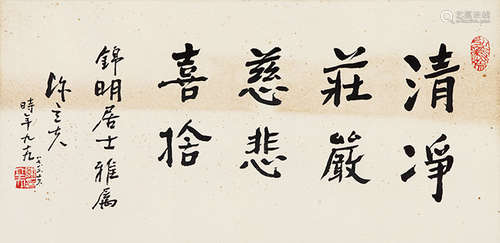 清淨
莊嚴
慈悲
喜捨
錦明居士雅屬
陳立夫
時年九九